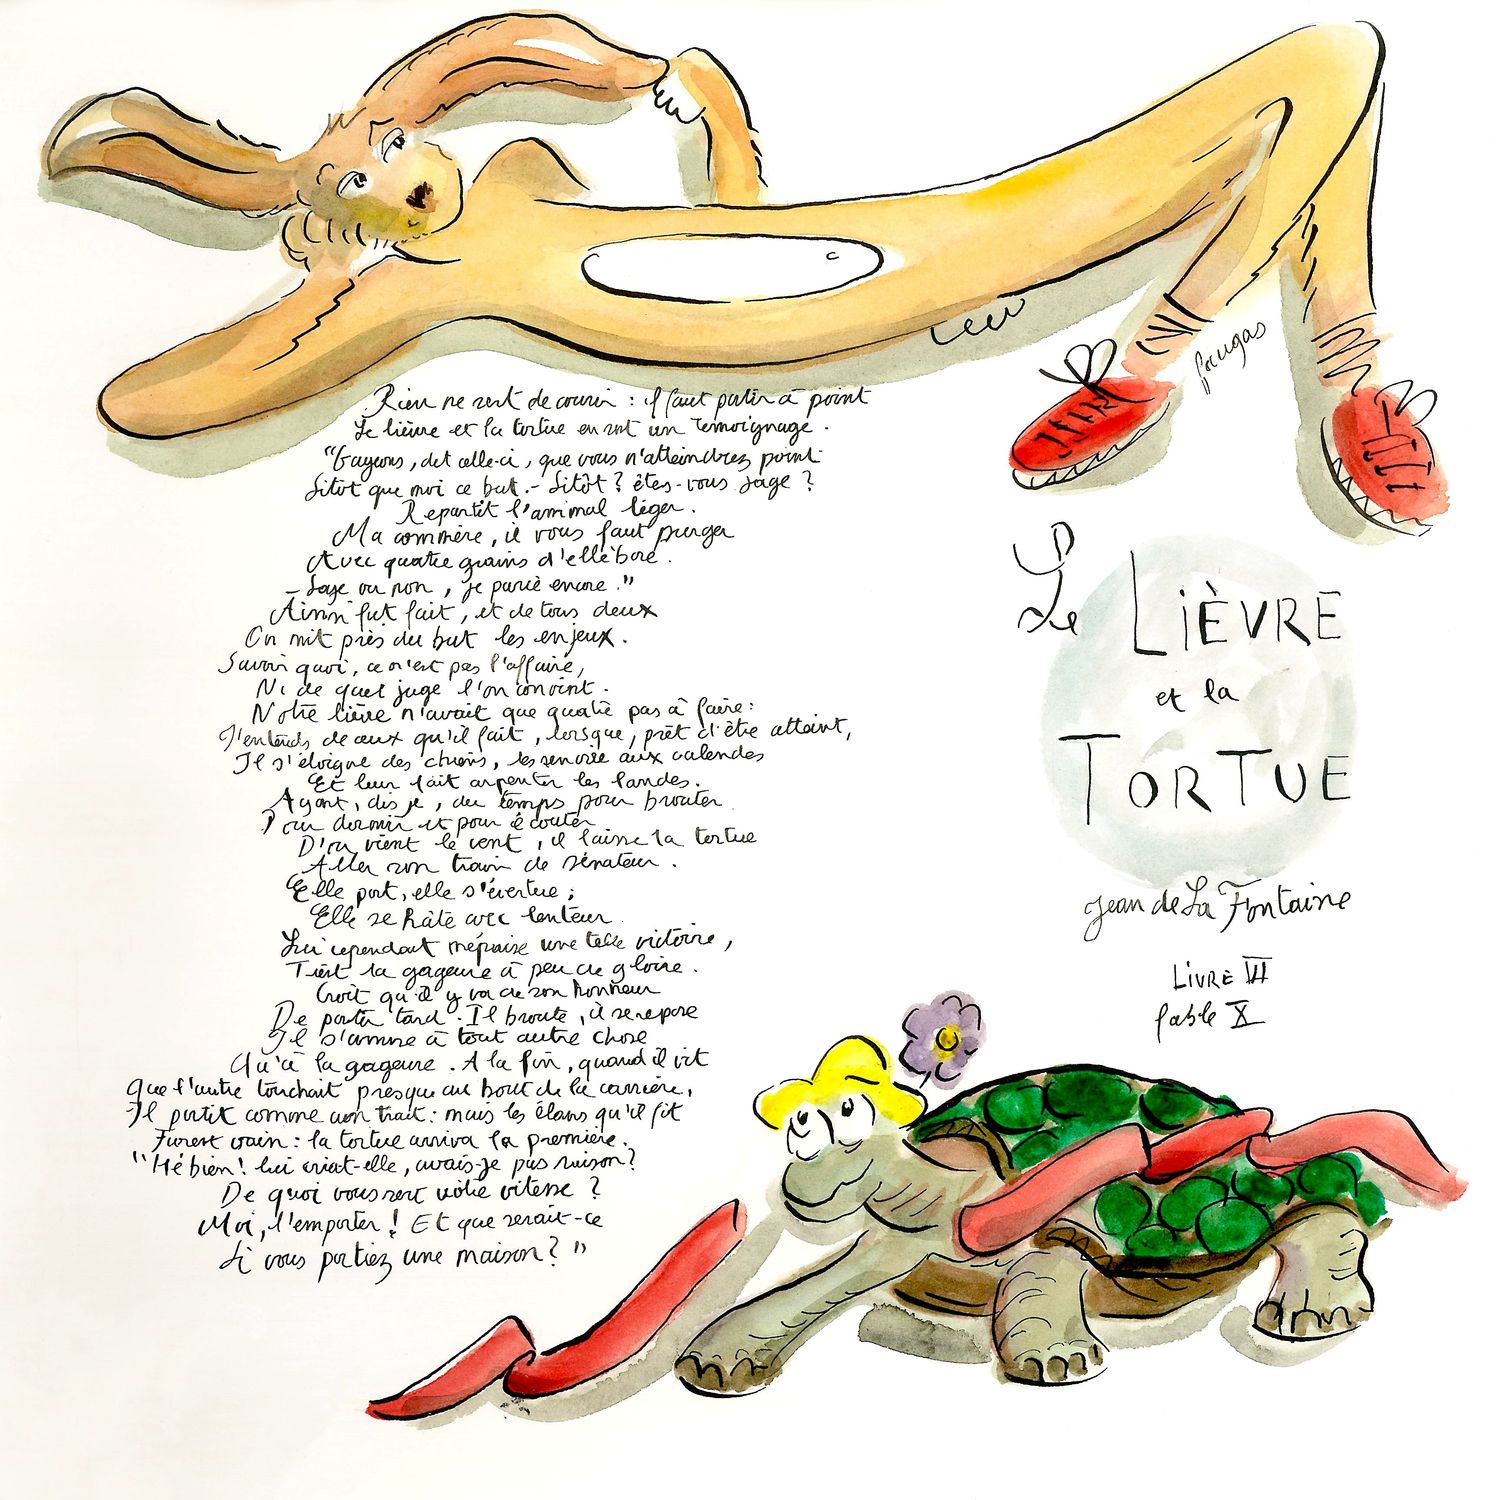 Rien ne sert de courir : il faut partir à point
Le lièvre et la tortue en sont un témoignage.
"Gageons, dit celle-ci, que vous n'atteindrez point
Sitôt que moi ce but. - Sitôt ? êtes-vous sage ?
Repartit l'animal léger.
Ma commère, il vous faut purger
Avec quatre grains d'ellébore.
- Sage ou non, je parie encore."
Ainsi fut fait, et de tous deux
On mit près du but les enjeux.
Savoir quoi, ce n'est pas l'affaire,
Ni de quel juge l'on convint.
Notre lièvre n'avait que quatre pas à faire :
J'entends de ceux qu'il fait, lorsque, prêt d'être atteint,
Il s'éloigne des chiens, les renvoie aux calendes
Et leur fait arpenter les landes.
Ayant, dis je, du temps pour brouter
Pour dormir et pour écouter
D'où vient le vent, il laisse la tortue
Aller son train de sénateur.
Elle part, elle s'évertue ;
Elle se hâte avec lenteur.
Lui cependant méprise une telle victoire,
Tient la gageure à peu de gloire.
Croit qu'il y va de son honneur
De partir tard. Il broute, il se repose
Il s'amuse à tout autre chose
Qu'à la gageure. A la fin, quand il vit
Que l'autre touchait presque au bout de la carrière,
Il partit comme un trait : mais les élans qu'il fit
Furent vain : la tortue arriva la première.
"Hé bien ! lui criat-elle, avais-je pas raison ?
De quoi vous sert vôtre vitesse ?
Moi, l'emporter ! Et que serait-ce
Si vous portiez une maison ? "
fougas
Le LIÈVRE
et la
TORTUE
Jean de La Fontaine
LIVRE VI
fable X